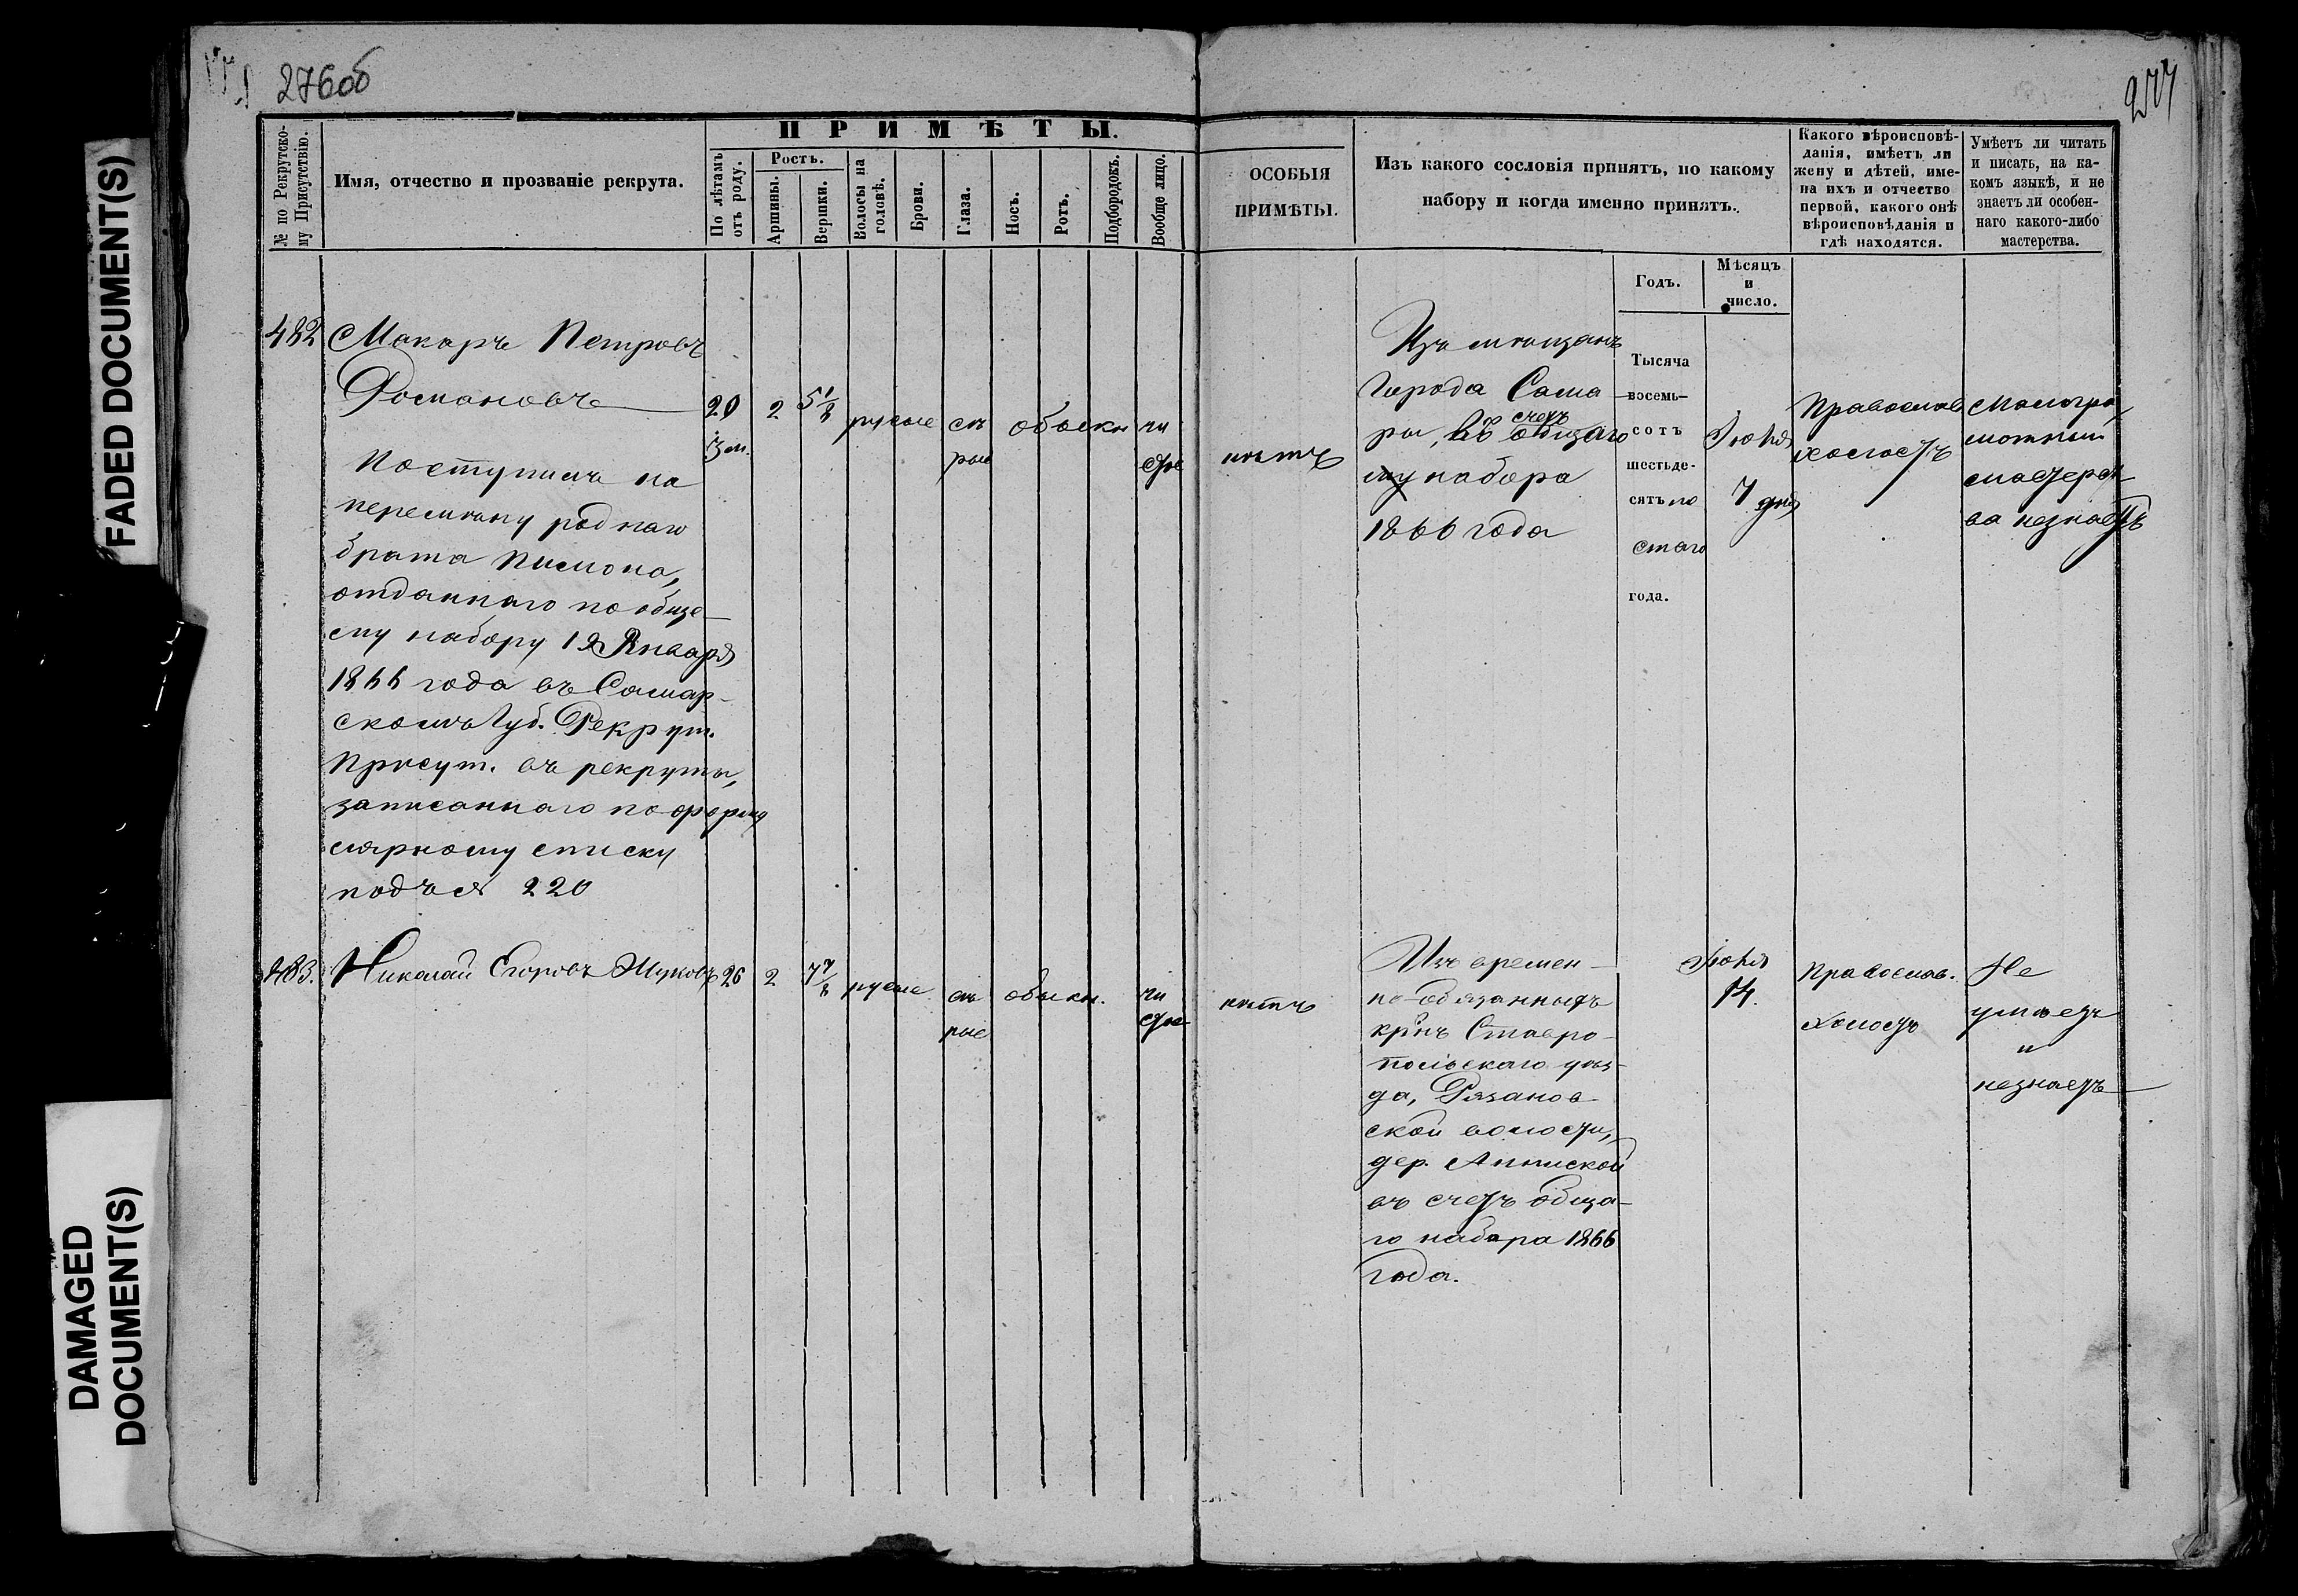 FADED DOCUMENT(S)
DAMAGED
DOCUMENT(S)
276об
277
№ по Рекрутско-
му Присутствію.
Имя, отчество и прозваніе рекрута.
ПРИМѢТЫ.
По лѣтамъ
отъ роду.
Ростъ.
Аршины.
Вершки.
Волосы на
головѣ.
Брови.
Глаза.
Носъ.
Ротъ.
Подбородокъ.
Вообще лицо.
ОСОБЫЯ
ПРИМѢТЫ.
Изъ какого сословія принятъ, по какому
набору и когда именно принятъ.
Какого вѣроисповѣ-
данія, имѣетъ ли
жену и дѣтей, име-
на ихъ и отчество
первой, какого онѣ
вѣроисповѣданія и
гдѣ находятся.
Умѣетъ ли читать
и писать, на ка-
комъ языкѣ, и не
знаетъ ли особен-
наго какого-либо
мастерства.
Годъ.
Мѣсяцъ
и
число.
482
Макаръ Петровъ
Романовъ
Поступилъ на
перемѣну роднаго
брата Пимона,
отданнаго по обще-
му набору 12 Января
1866 года въ Самар-
скомъ Губ. Рекрут.
Присут. въ рекруты,
записаннаго по форму
лярному списку
подъ № 220
20
2
5 1/8
русые
сѣ
рые
обыкн
чи
стое
нѣтъ
Изъ мѣщанъ
Города Сама
ры, въ счетъ общаго
набора
1866 года
Тысяча
восемь-
сотъ
шестьде-
сятъ по
стаго
года.
Іюня
7 дня
Православ
холостъ
Малогра
мотный
мастерст
ва незнаетъ
483.
Николай Егоровъ Жуковъ
26
2
7 7/8
русые
сѣ
рые
обыкн.
чи
стое
нѣтъ
Изъ времен-
но-обязанныхъ
крнъ Ставро-
польскаго уѣз-
да, Рязанов-
ской волости,
дер. Аннинской
въ счетъ обща-
го набора 1866
года.
Іюня
14.
Православ.
холостъ
Не
умѣетъ
и
незнаетъ